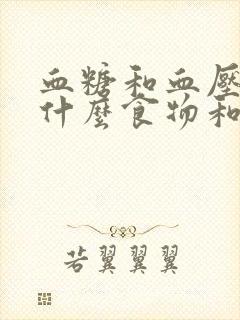 血糖和血壓
什麼食物和
若翼翼翼